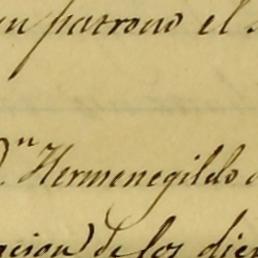 un patrono el
D.ⁿ Hermenegildo
acion) de los die